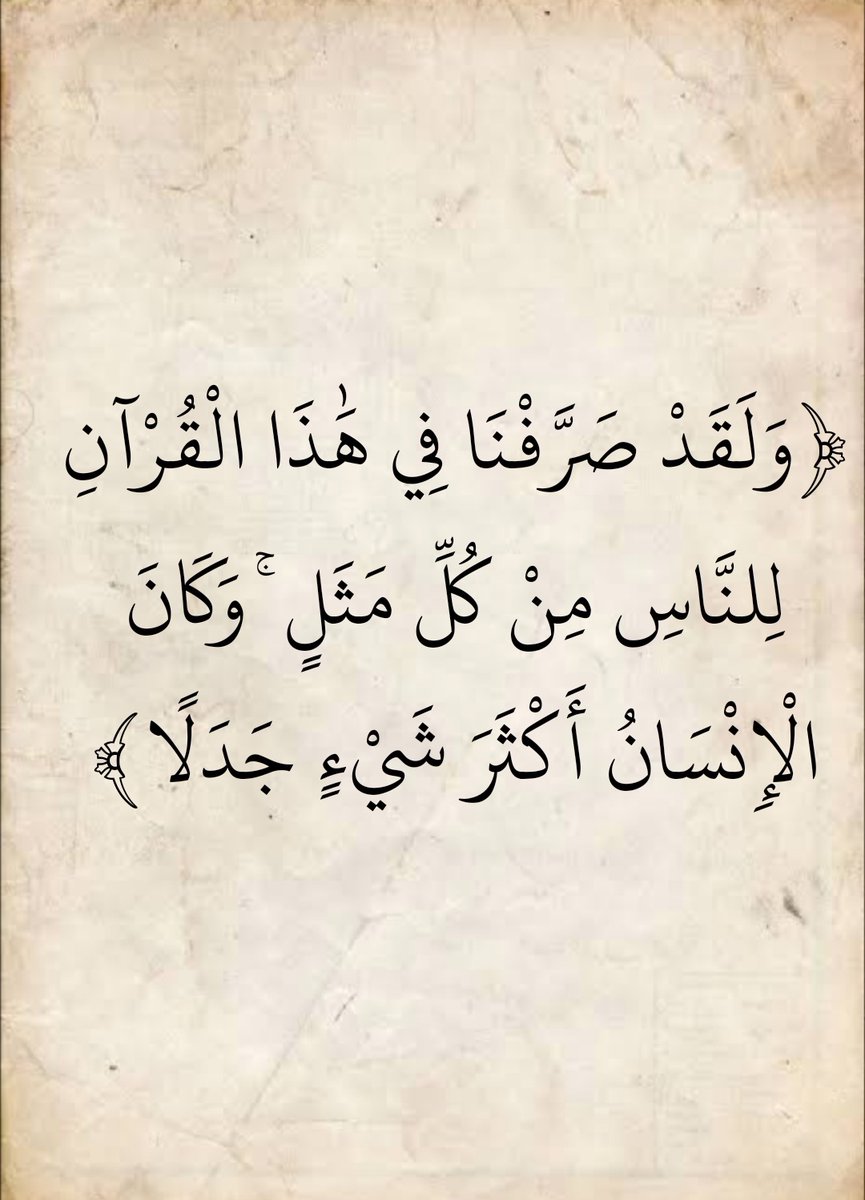 ﴿ وَلَقَدْ صَرَّفْنَا فِي هَٰذَا الْقُرْآنِ
لِلنَّاسِ مِنْ كُلِّ مَثَلٍ ۚ وَكَانَ
الْإِنْسَانُ أَكْثَرَ شَيْءٍ جَدَلًا ﴾